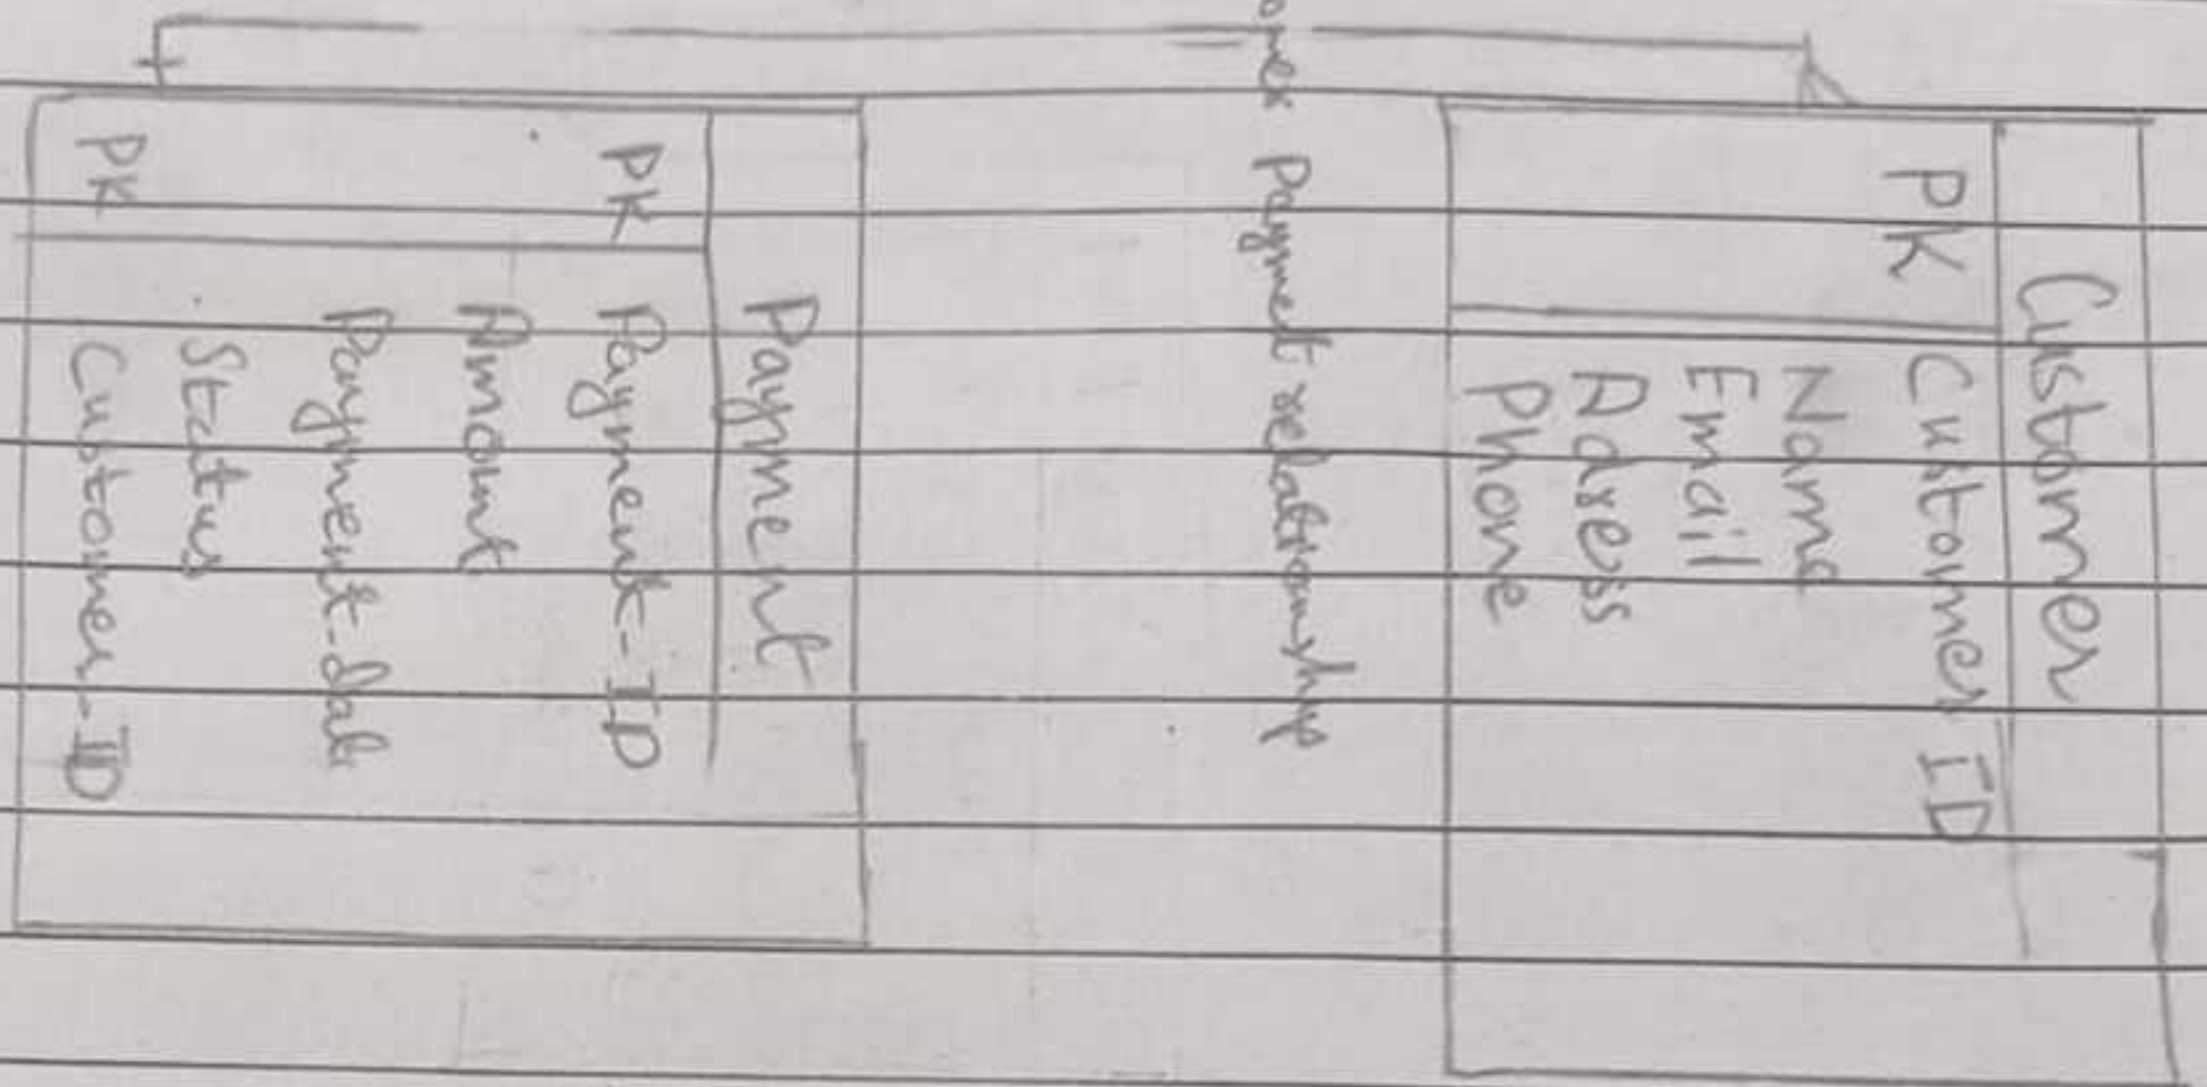 Customer
PK Customer ID
Name
Email
Adsess
Phone
omer Paymet relationship
Payment
PK Payment-ID
Amount
Payment-dat
Status
PK Customer-ID